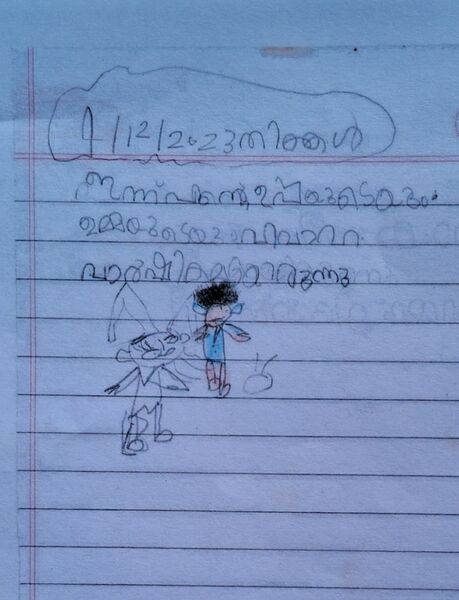 1/12/2023 തിങ്കൾ
ഇന്ന് എന്റെ ഉപ്പയുടെയും
ഉമ്മയുടെയും വിവാഹ
വാർഷികമായിരുന്നു